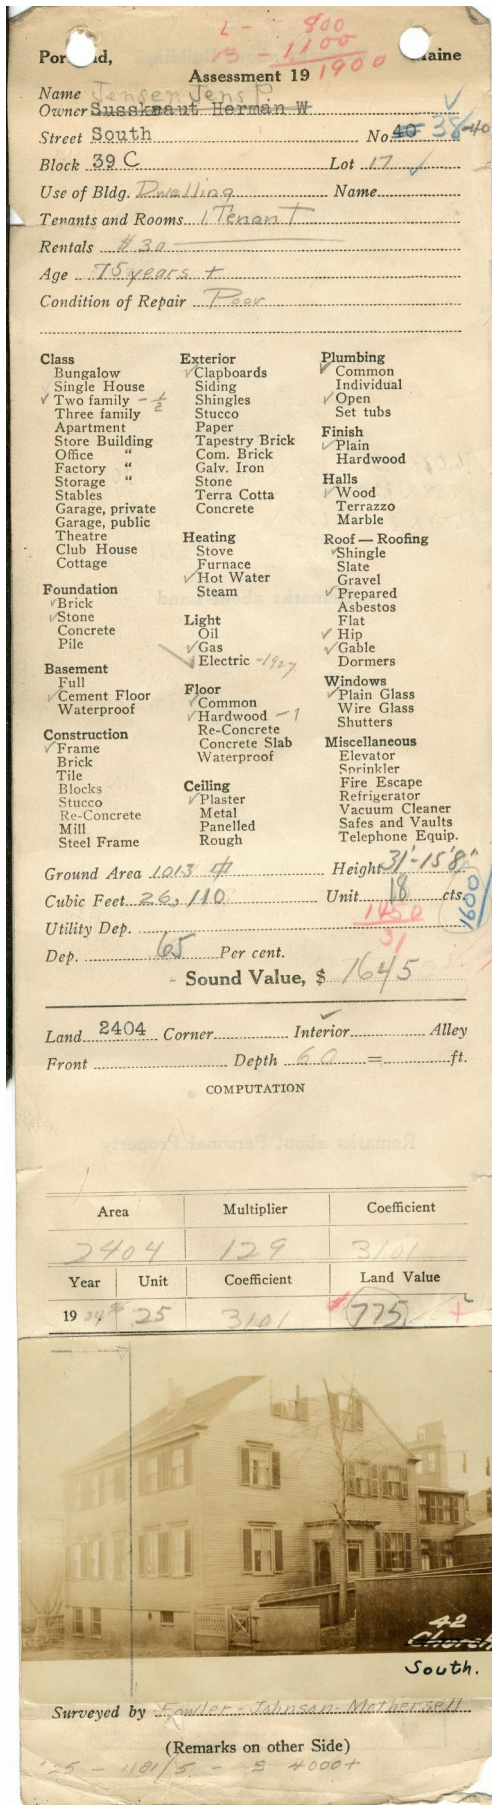 L - 800
B - 1100
1900
Portland, Maine
Assessment 19
Name Jensen Jens P
Owner Susskraut Herman W
Street South No. 40 38-40
Block 39 C Lot 17
Use of Bldg. Dwelling Name
Tenants and Rooms 1 Tenant
Rentals $30
Age 75 years +
Condition of Repair Poor
Class
Bungalow
Single House
✓ Two family - 1/2
Three family
Apartment
Store Building
Office "
Factory "
Storage "
Stables
Garage, private
Garage, public
Theatre
Club House
Cottage
Foundation
✓ Brick
✓ Stone
Concrete
Pile
Basement
Full
✓ Cement Floor
Waterproof
Construction
✓ Frame
Brick
Tile
Blocks
Stucco
Re-Concrete
Mill
Steel Frame
Exterior
✓ Clapboards
Siding
Shingles
Stucco
Paper
Tapestry Brick
Com. Brick
Galv. Iron
Stone
Terra Cotta
Concrete
Heating
Stove
Furnace
✓ Hot Water
Steam
Light
Oil
✓ Gas
✓ Electric - 1927
Floor
✓ Common
✓ Hardwood - 1
Re-Concrete
Concrete Slab
Waterproof
Ceiling
✓ Plaster
Metal
Panelled
Rough
Plumbing
✓ Common
Individual
✓ Open
Set tubs
Finish
✓ Plain
Hardwood
Halls
✓ Wood
Terrazzo
Marble
Roof — Roofing
✓ Shingle
Slate
Gravel
✓ Prepared
Asbestos
Flat
✓ Hip
✓ Gable
Dormers
Windows
✓ Plain Glass
Wire Glass
Shutters
Miscellaneous
Elevator
Sprinkler
Fire Escape
Refrigerator
Vacuum Cleaner
Safes and Vaults
Telephone Equip.
Ground Area 1013 Height 31'-15'8"
Cubic Feet 26,110 Unit 18 cts. 1600
1450
Utility Dep. 31
Dep. 65 Per cent.
- Sound Value, $ 1645
Land 2404 Corner Interior ✓ Alley
Front Depth 60 = ft.
COMPUTATION
Area Multiplier Coefficient
2404 129 3101
Year Unit Coefficient Land Value
19 24 25 3101 775
42
Church
South.
Surveyed by Fowler - Johnson - Mothersell
(Remarks on other Side)